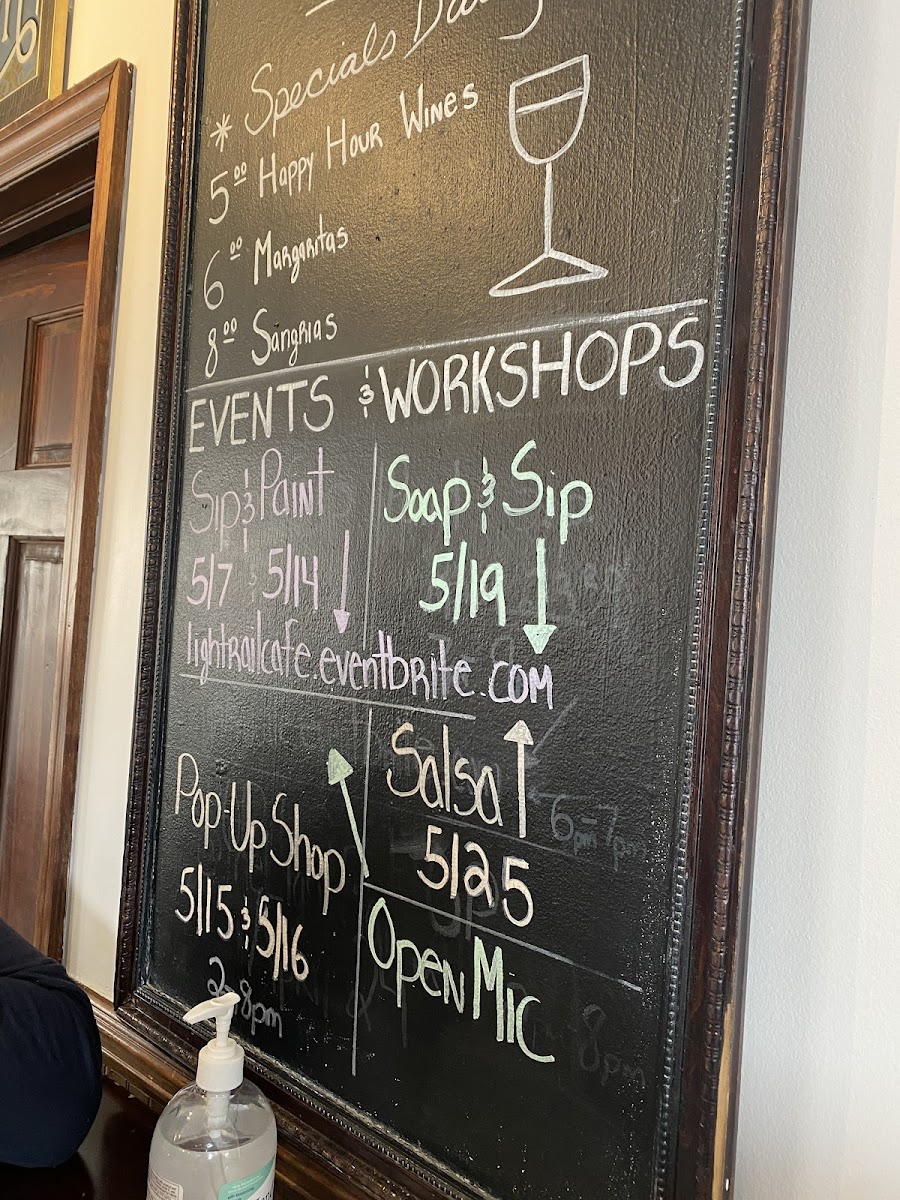 * Specials Daily
5⁰⁰ Happy Hour Wines
6⁰⁰ Margaritas
8⁰⁰ Sangrias
EVENTS & WORKSHOPS
Sip & Paint
5/7 & 5/14
Soap & Sip
5/19
lightrailcafe.eventbrite.com
Pop-Up Shop
5/15 & 5/16
2-8pm
Salsa
6pm-7pm
5/25
Open Mic
8pm